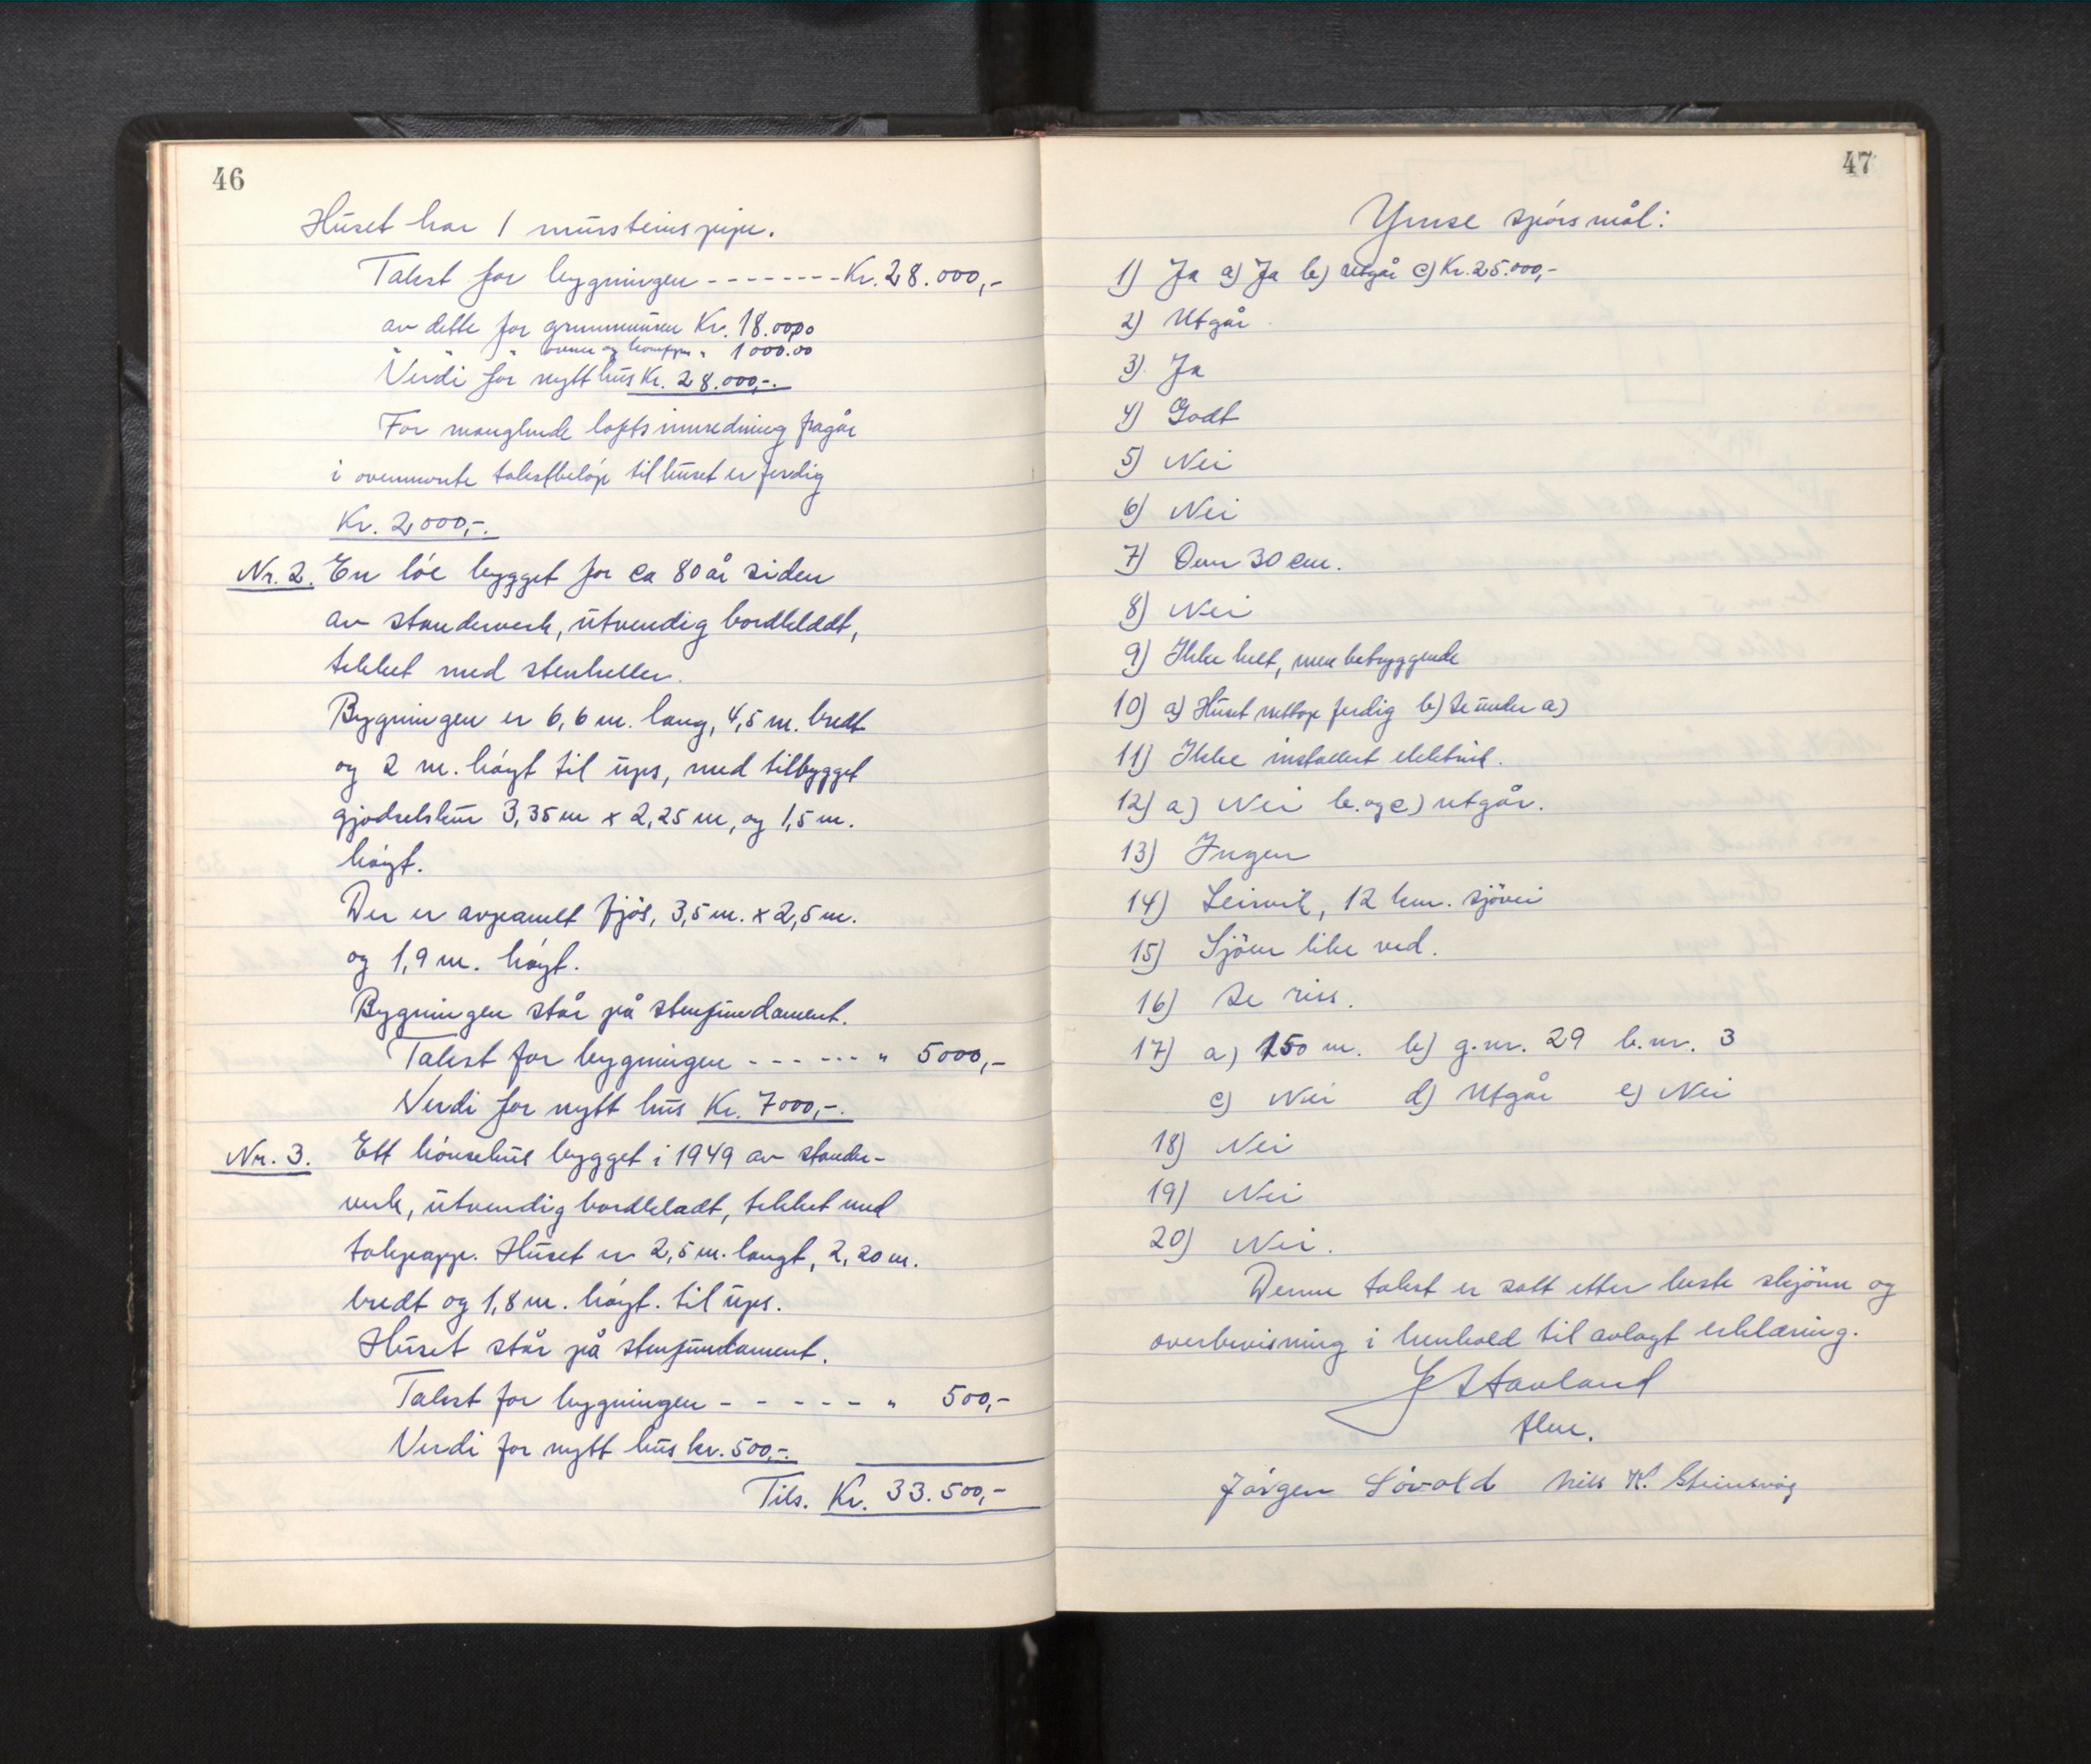 46
Huset har 1 mursteinspipe.
Takst for bygningen -------- Kr. 28.000,-
av dette for grunnmuren Kr. 18.000,00
" " " ovner og komfyr " 1000.00
Verdi for nytt hus Kr. 28.000,-.
For manglende loftsinnredning fragår
i ovennevnte takstbeløp til huset er ferdig
Kr. 2000,-.
Nr. 2. En löe bygget for ca 80 år siden
av standerverk, utvendig bordkledt,
tekket med stenheller.
Bygningen er 6,6 m. lang, 4,5 m. bredt
og 2 m. höyt til ups, med tilbygget
gjödselskur 3,35 m x 2,25 m, og 1,5 m.
höyt.
Der er avpanelt fjös, 3,5 m. x 2,5 m.
og 1,9 m. höyt.
Bygningen står på stenfundament.
Takst for bygningen - - - - - - " 5000,-
Verdi for nytt hus Kr. 7000,-.
Nr. 3. Ett hönsehus bygget i 1949 av stander-
verk, utvendig bordkledt, tekket med
takpapp. Huset er 2,5 m. langt, 2,20 m.
bredt og 1,8 m. höyt. til ups.
Huset står på stenfundament.
Takst for bygningen - - - - - - " 500,-
Verdi for nytt hus kr. 500,-.
Tils. Kr. 33.500,-
47
Ymse spörsmål:
1) Ja a) Ja b) utgår c) Kr. 25.000,-
2) Utgår
3) Ja
4) Godt
5) Nei
6) Nei
7) Over 30 cm.
8) Nei
9) Ikke helt, men betryggende
10) a) Huset nettop ferdig b) Se under a)
11) Ikke installert elektrisk.
12) a) Nei b. og c) utgår.
13) Ingen
14) Leirvik, 12 km. sjövei
15) Sjöen like ved.
16) Se riss.
17) a) 150 m. b) g.nr. 29 b.nr. 3
c) Nei d) Utgår e) Nei
18) Nei
19) Nei
20) Nei.
Denne takst er satt etter beste skjönn og
overbevisning i henhold til avlagt erklæring.
Stavland
Jörgen Lövold Nils K. Steinsvåg